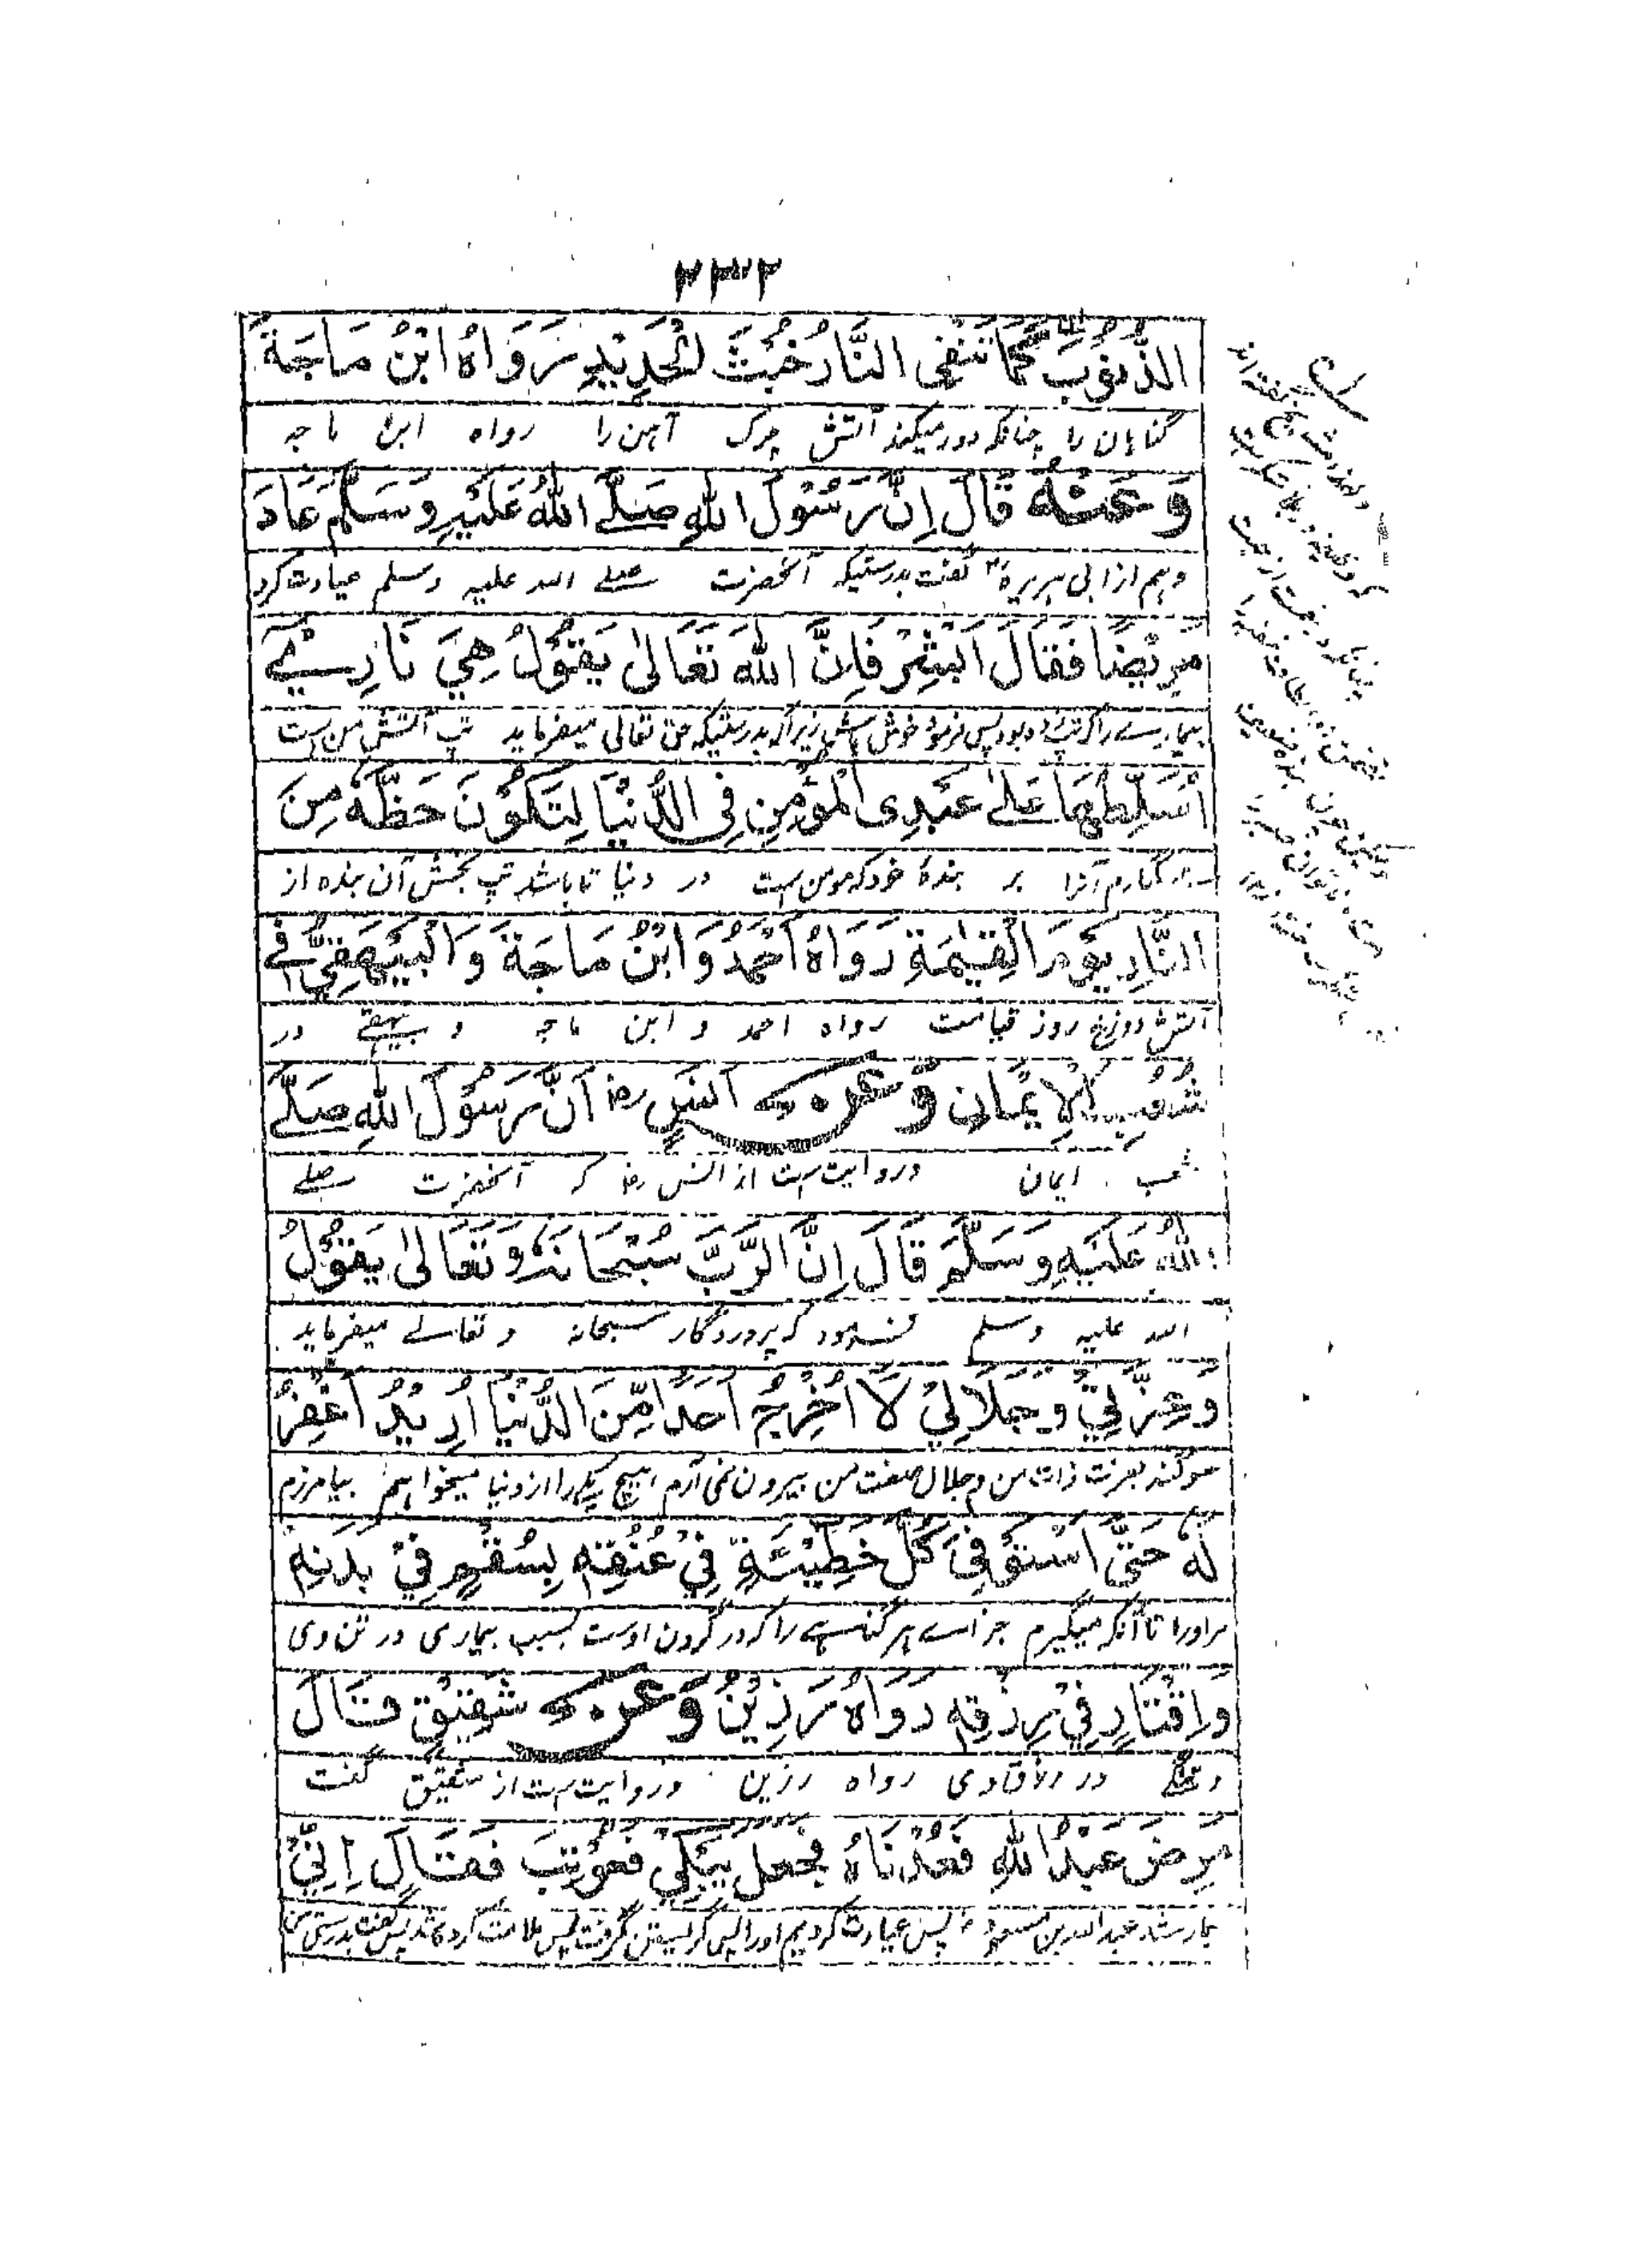 ۲۳۲
الذُّنُوْبَ كَمَا تَنْفِى النَّارُ خَبَثَ الْحَدِيْدِ رَوَاهُ ابْنُ مَاجَةَ
گناہان را چنانکہ دور میکند آتش چرک آہن را رواہ ابن ماجہ
وَعَنْهُ قَالَ اِنَّ رَسُوْلَ اللهِ صَلَّے اللهُ عَلَيْهِ وَسَلَّمَ عَادَ
و ہم از ابی ہریرہ رض گفت بدرستیکہ آنحضرت صلے اللہ علیہ وسلم عیادت کرد
مَرِيْضًا فَقَالَ اَبْشِرْ فَاِنَّ اللهَ تَعَالىٰ يَقُوْلُ هِيَ نَارِىْ
بیمارے را کہ تپ بود پس فرمود خوش باش زیراکہ بدرستیکہ حق تعالی میفرماید تپ آتش من است
اُسَلِّطُهَا عَلىٰ عَبْدِى الْمُؤْمِنِ فِى الدُّنْيَا لِتَكُوْنَ حَظَّهٗ مِنَ
برگمارم آنرا بر بندۂ خود کہ مومن است در دنیا تا باشد تپ بخش آن بندہ از
النَّارِ يَوْمَ الْقِيٰمَةِ رَوَاهُ اَحْمَدُ وَابْنُ مَاجَةَ وَالْبَيْهَقِيُّ فِے
آتش دوزخ روز قیامت رواہ احمد و ابن ماجہ و بیہقے در
شُعَبِ الْاِيْمَانِ وَعَنْ اَنَسٍ رض اَنَّ رَسُوْلَ اللهِ صَلَّے
شعب ایمان و روایت است از انس رض کہ آنحضرت صلے
اللهُ عَلَيْهِ وَسَلَّمَ قَالَ اِنَّ الرَّبَّ سُبْحَانَهٗ وَتَعَالىٰ يَقُوْلُ
اللہ علیہ وسلم فرمود کہ پروردگار سبحانہ و تعالے میفرماید
وَعِزَّتِيْ وَجَلَالِيْ لَا اُخْرِجُ اَحَدًا مِّنَ الدُّنْيَا اُرِيْدُ اَغْفِرُ
سوگند بعزت ذات من و جلال صفت من بیرون نمی آرم ہیچ یکے را از دنیا میخواہم بیامرزم
لَهٗ حَتّٰى اَسْتَوْفِىَ كُلَّ خَطِيْئَةٍ فِيْ عُنُقِهٖ بِسُقْمٍ فِيْ بَدَنِهٖ
مر او را تا آنکہ میگیرم جزاے ہر گناہے را کہ در گردن اوست بسبب بیماری در تن وی
وَاِقْتَارٍ فِيْ رِزْقِهٖ رَوَاهُ رَزِيْنُ وَعَنْ شَقِيْقٍ قَالَ
و تنگے در رواہ رزین و روایت است از شقیق گفت
مَرِضَ عَبْدُ اللهِ فَعُدْنَاهُ فَجَعَلَ يَبْكِيْ فَعُوْتِبَ فَقَالَ اِنِّيْ
بیمار شد عبد اللہ بن مسعود پس عیادت کردیم او را پس گریستن گرفت پس ملامت کردہ شد پس گفت بدرستی من